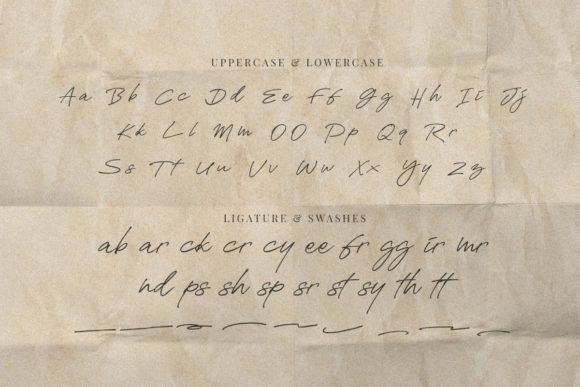 UPPERCASE & LOWERCASE
Aa Bb Cc Dd Ee Ff Gg Hh Ii Jj
Kk Ll Mm OO Pp Qq Rr
Ss Tt Uu Vv Ww Xx Yy Zz
LIGATURE & SWASHES
ab ar ck cr cy ee fr gg ir mr
nd ps sh sp sr st sy th tt